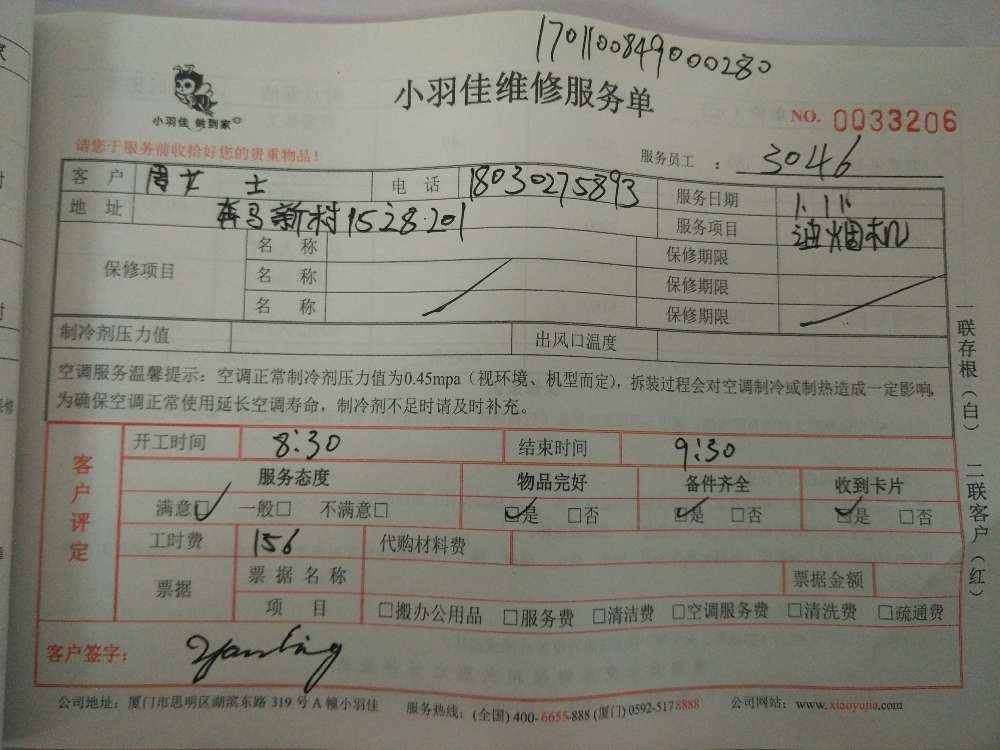 1701100849000280
小羽佳维修服务单
小羽佳 帮到家
NO. 0033206
请您于服务前收拾好您的贵重物品!
服务员工 : 3046
客 户 周女士 电 话 18030275893 服务日期 1.11
地 址 奔马新村1528.201 服务项目 油烟机
保修项目
名 称 保修期限
名 称 保修期限
名 称 保修期限
制冷剂压力值 出风口温度
空调服务温馨提示:空调正常制冷剂压力值为0.45mpa(视环境、机型而定),拆装过程会对空调制冷或制热造成一定影响,
为确保空调正常使用延长空调寿命,制冷剂不足时请及时补充。
客户评定
开工时间 8:30 结束时间 9:30
服务态度 物品完好 备件齐全 收到卡片
满意☑ 一般□ 不满意□ ☑是 □否 ☑是 □否 ☑是 □否
工时费 156 代购材料费
票据 票据名称 票据金额
项 目 □搬办公用品 □服务费 □清洁费 □空调服务费 □清洗费 □疏通费
客户签字:
公司地址:厦门市思明区湖滨东路 319 号 A 幢小羽佳 服务热线:(全国) 400-6655-888 (厦门) 0592-5178888 公司网站:www.xiaoyujia.com
一联存根(白) 二联客户(红)